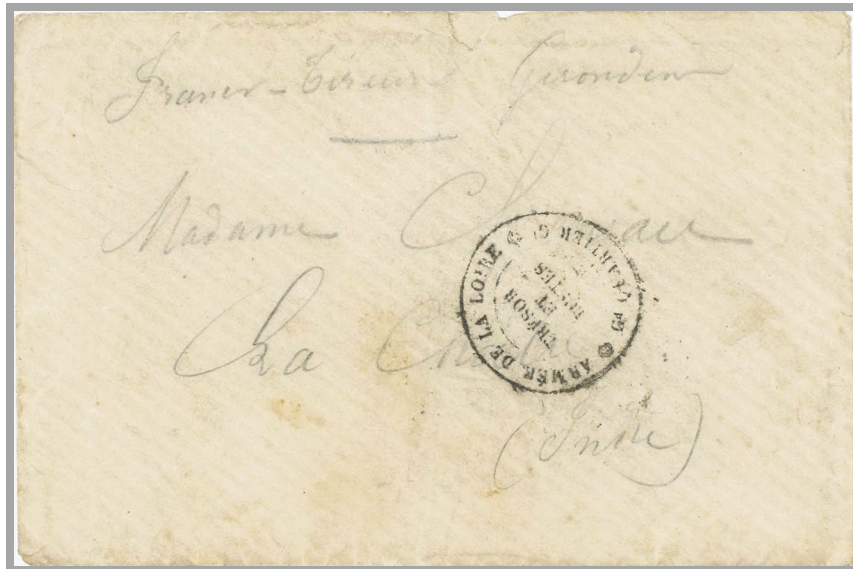 Franc-Tireur Girondin
Madame
La
(Indre)
ARMÉE DE LA LOIRE
QUARTIER G
TRESOR
ET
POSTES